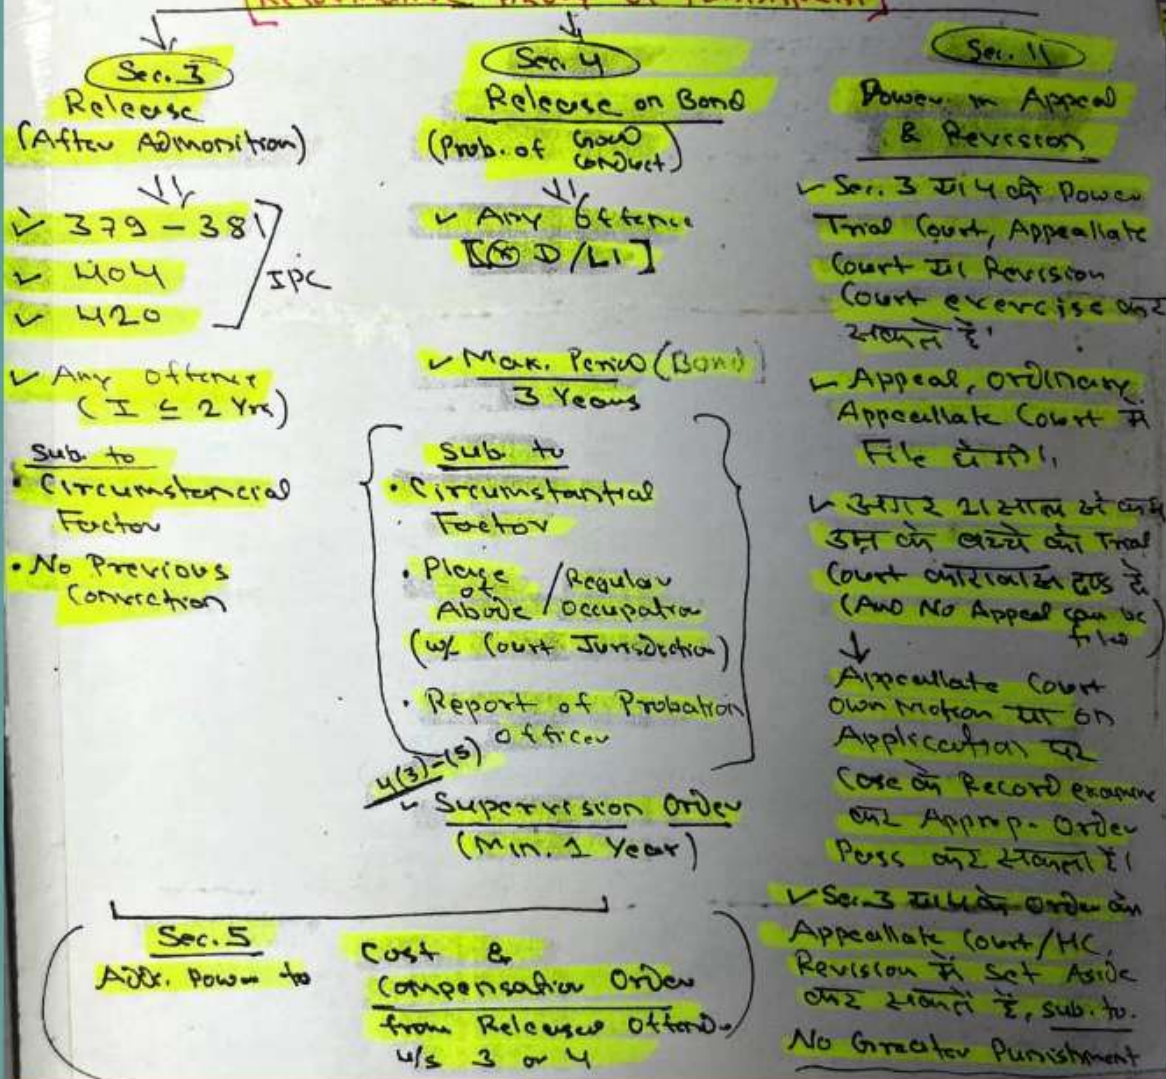 Reformative Theory of Punishment
Sec. 3
Release
(After Admonition)
✓ 379 – 381
✓ 404
✓ 420
IPC
✓ Any offence
(I ≤ 2 Yrs)
Sub. to
• Circumstancial
Factor
• No Previous
Conviction
Sec. 4
Release on Bond
(Prob. of Good Conduct)
✓ Any Offence
[⊗ D/LI]
✓ Max. Period (Bond)
3 Years
Sub. to
• Circumstantial
Factor
• Place of Abode / Regular Occupation
(w/ Court Jurisdiction)
• Report of Probation
Officer
4(3)-(5)
✓ Supervision Order
(Min. 1 Year)
Sec. 5
Add. Power to
Cost &
Compensation Order
from Released Offend.
u/s 3 or 4
Sec. 11
Power in Appeal
& Revision
✓ Sec. 3 या 4 की Power
Trial Court, Appeallate
Court या Revision
Court exercise कर
सकते है।
✓ Appeal, Ordinary
Appeallate Court में
File होगी।
✓ अगर 21 साल से कम
उम्र के बच्चे को Trial
Court कारावास दण्ड दे
(And No Appeal can be filed)
↓
Appeallate Court
own Motion या on
Application पर
Case के Record examine
कर Approp. Order
Pass कर सकता है।
✓ Sec. 3 या 4 के order को
Appeallate Court/HC,
Revision में Set Aside
कर सकते है, sub. to.
No Greater Punishment